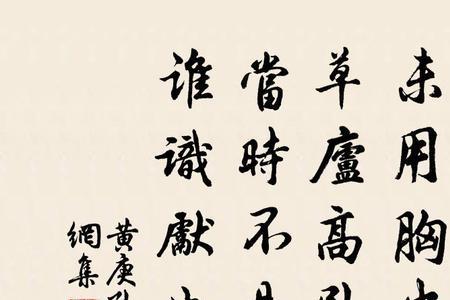 未用胸
草廬高
當時不
誰識獻
黃庚
網集